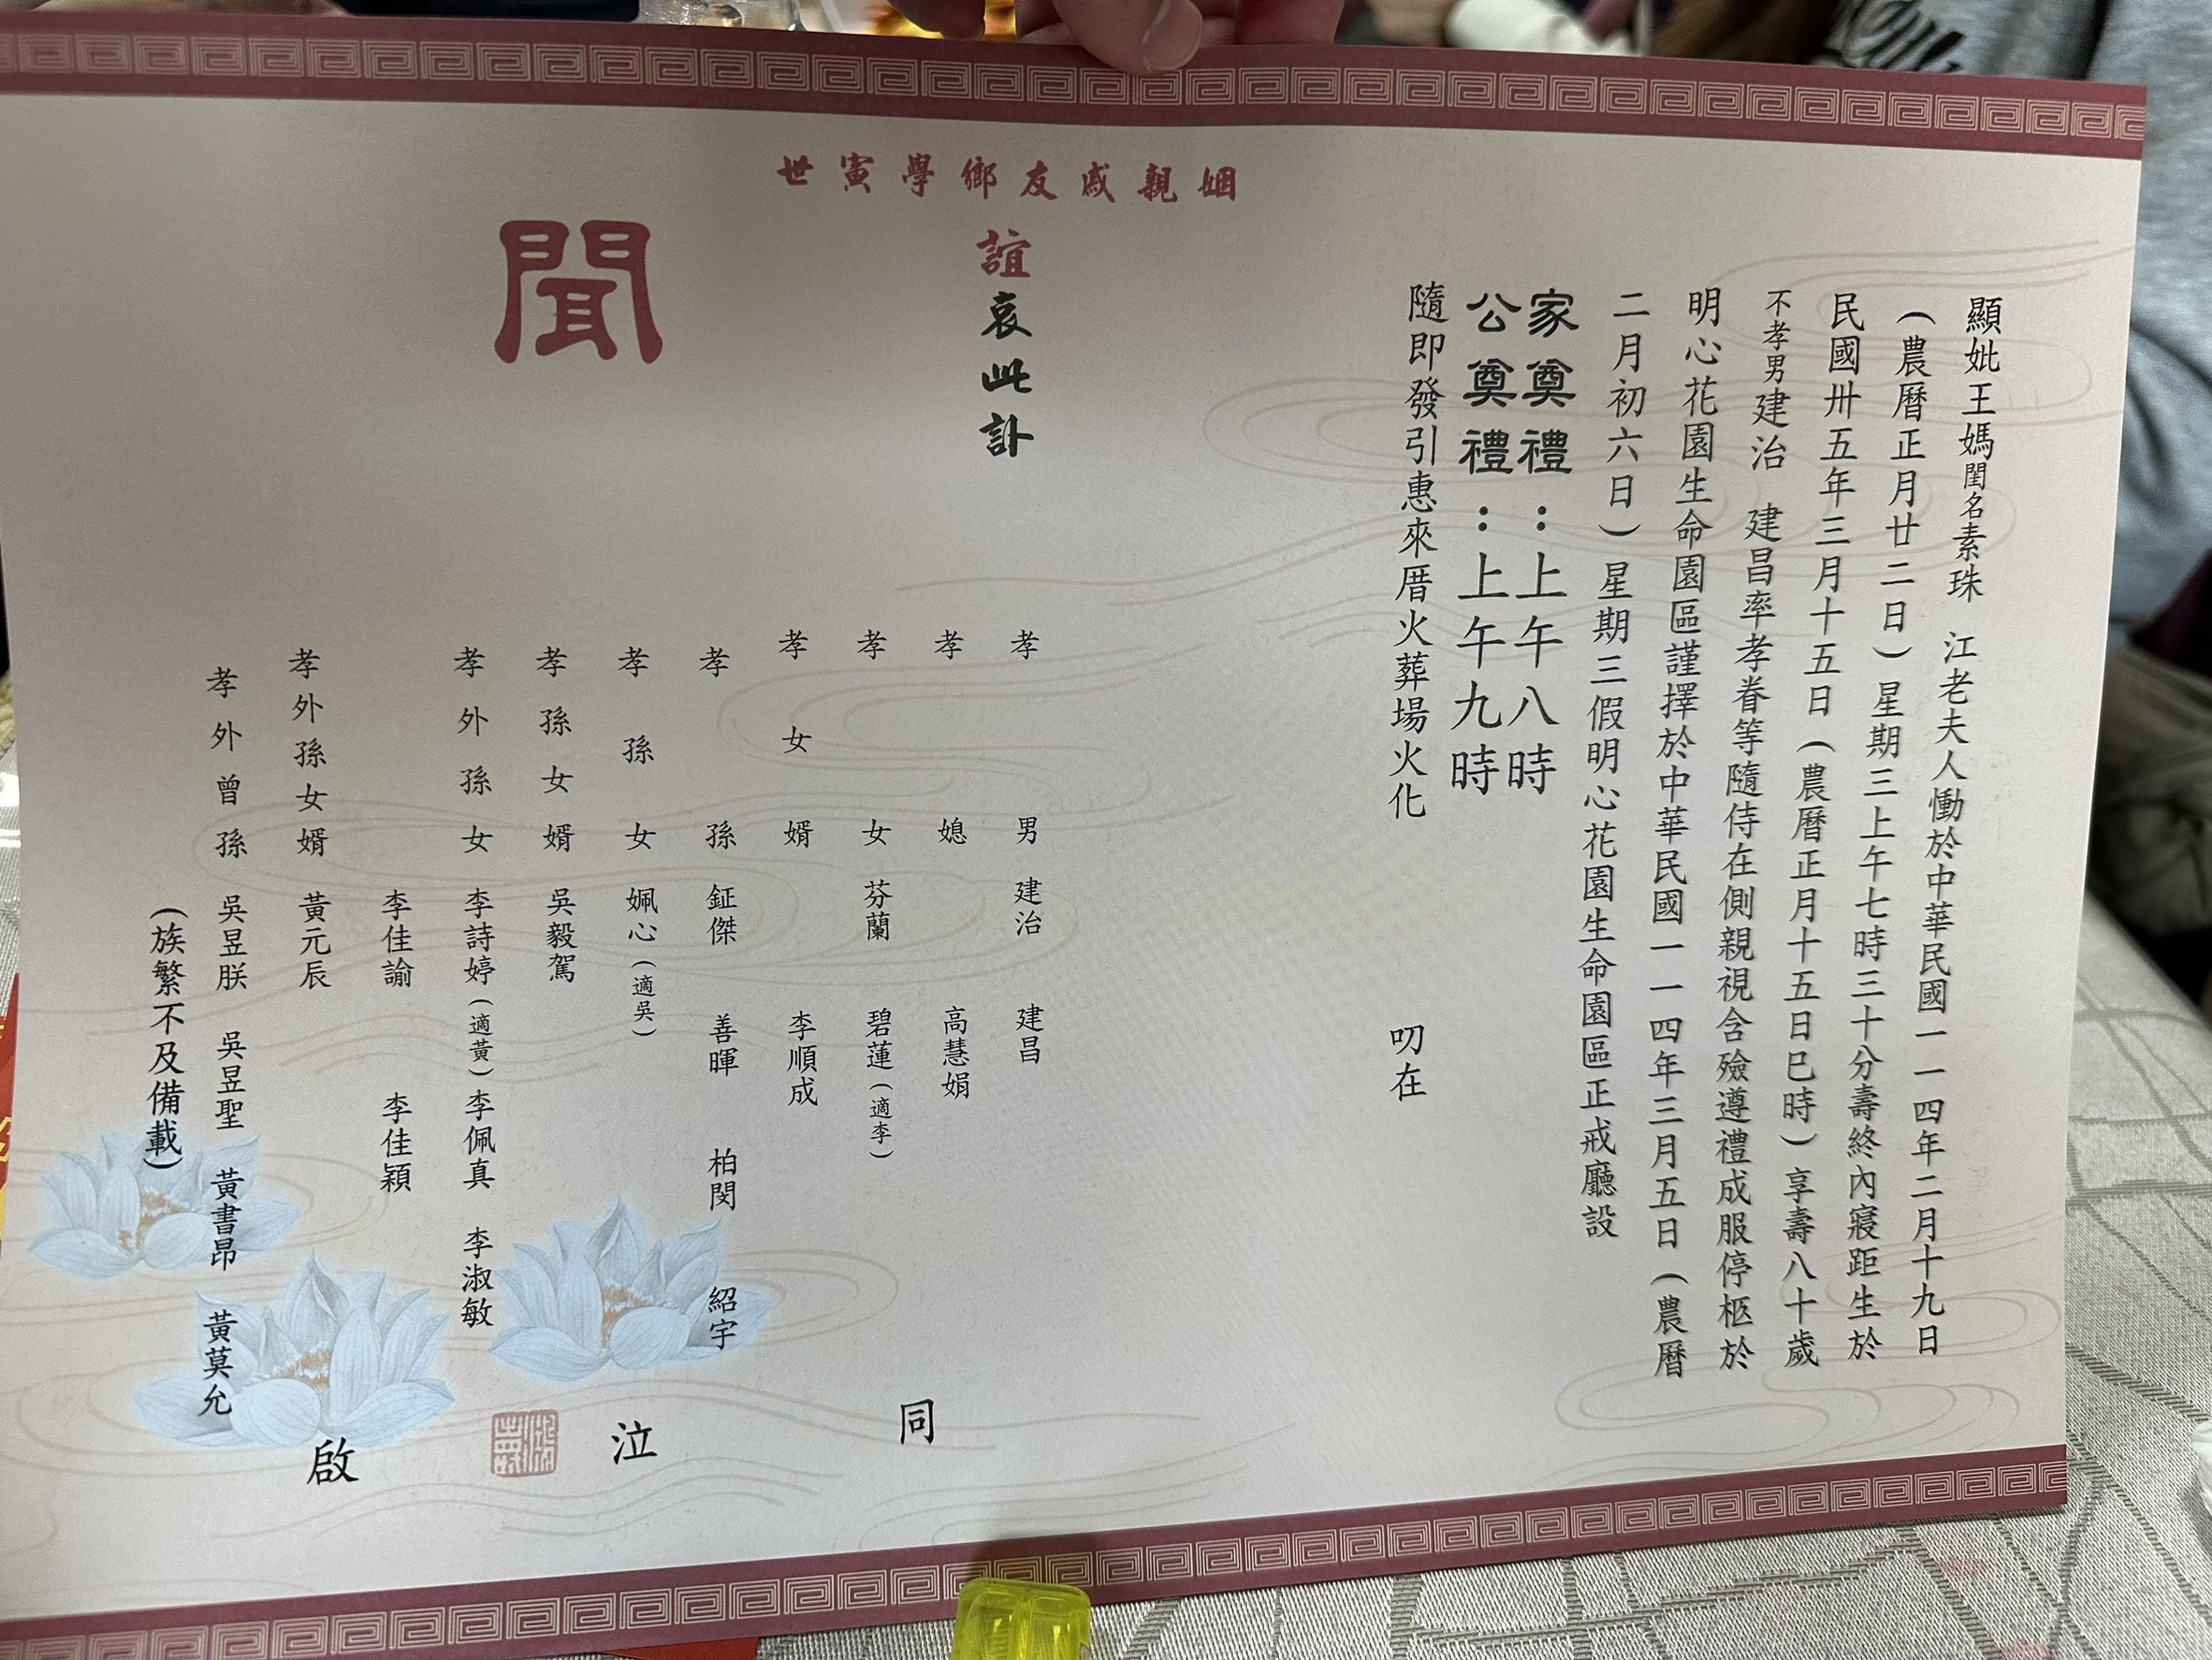 顯妣王媽閨名素珠　江老夫人慟於中華民國一一四年二月十九日
（農曆正月廿二日）星期三上午七時三十分壽終內寢距生於
民國卅五年三月十五日（農曆正月十五日巳時）享壽八十歲
不孝男建治　建昌率孝眷等隨侍在側親視含殮遵禮成服停柩於
明心花園生命園區謹擇於中華民國一一四年三月五日（農曆
二月初六日）星期三假明心花園生命園區正戒廳設
家奠禮：上午八時
公奠禮：上午九時
隨即發引惠來厝火葬場火化
叨在
姻親戚友鄉學寅世
誼哀此訃
聞
孝男　建治　建昌
孝媳　高慧娟
孝女　芬蘭　碧蓮（適李）
孝女婿　李順成
孝孫　鉦傑　善暉　柏閔　紹宇
孝孫女　姵心（適吳）
孝孫女婿　吳毅駕
孝外孫女　李詩婷（適黃）李佩真　李淑敏
李佳諭　李佳穎
孝外孫女婿　黃元辰
孝外曾孫　吳昱朕　吳昱聖　黃書昂　黃莫允
（族繁不及備載）
同
泣
啟